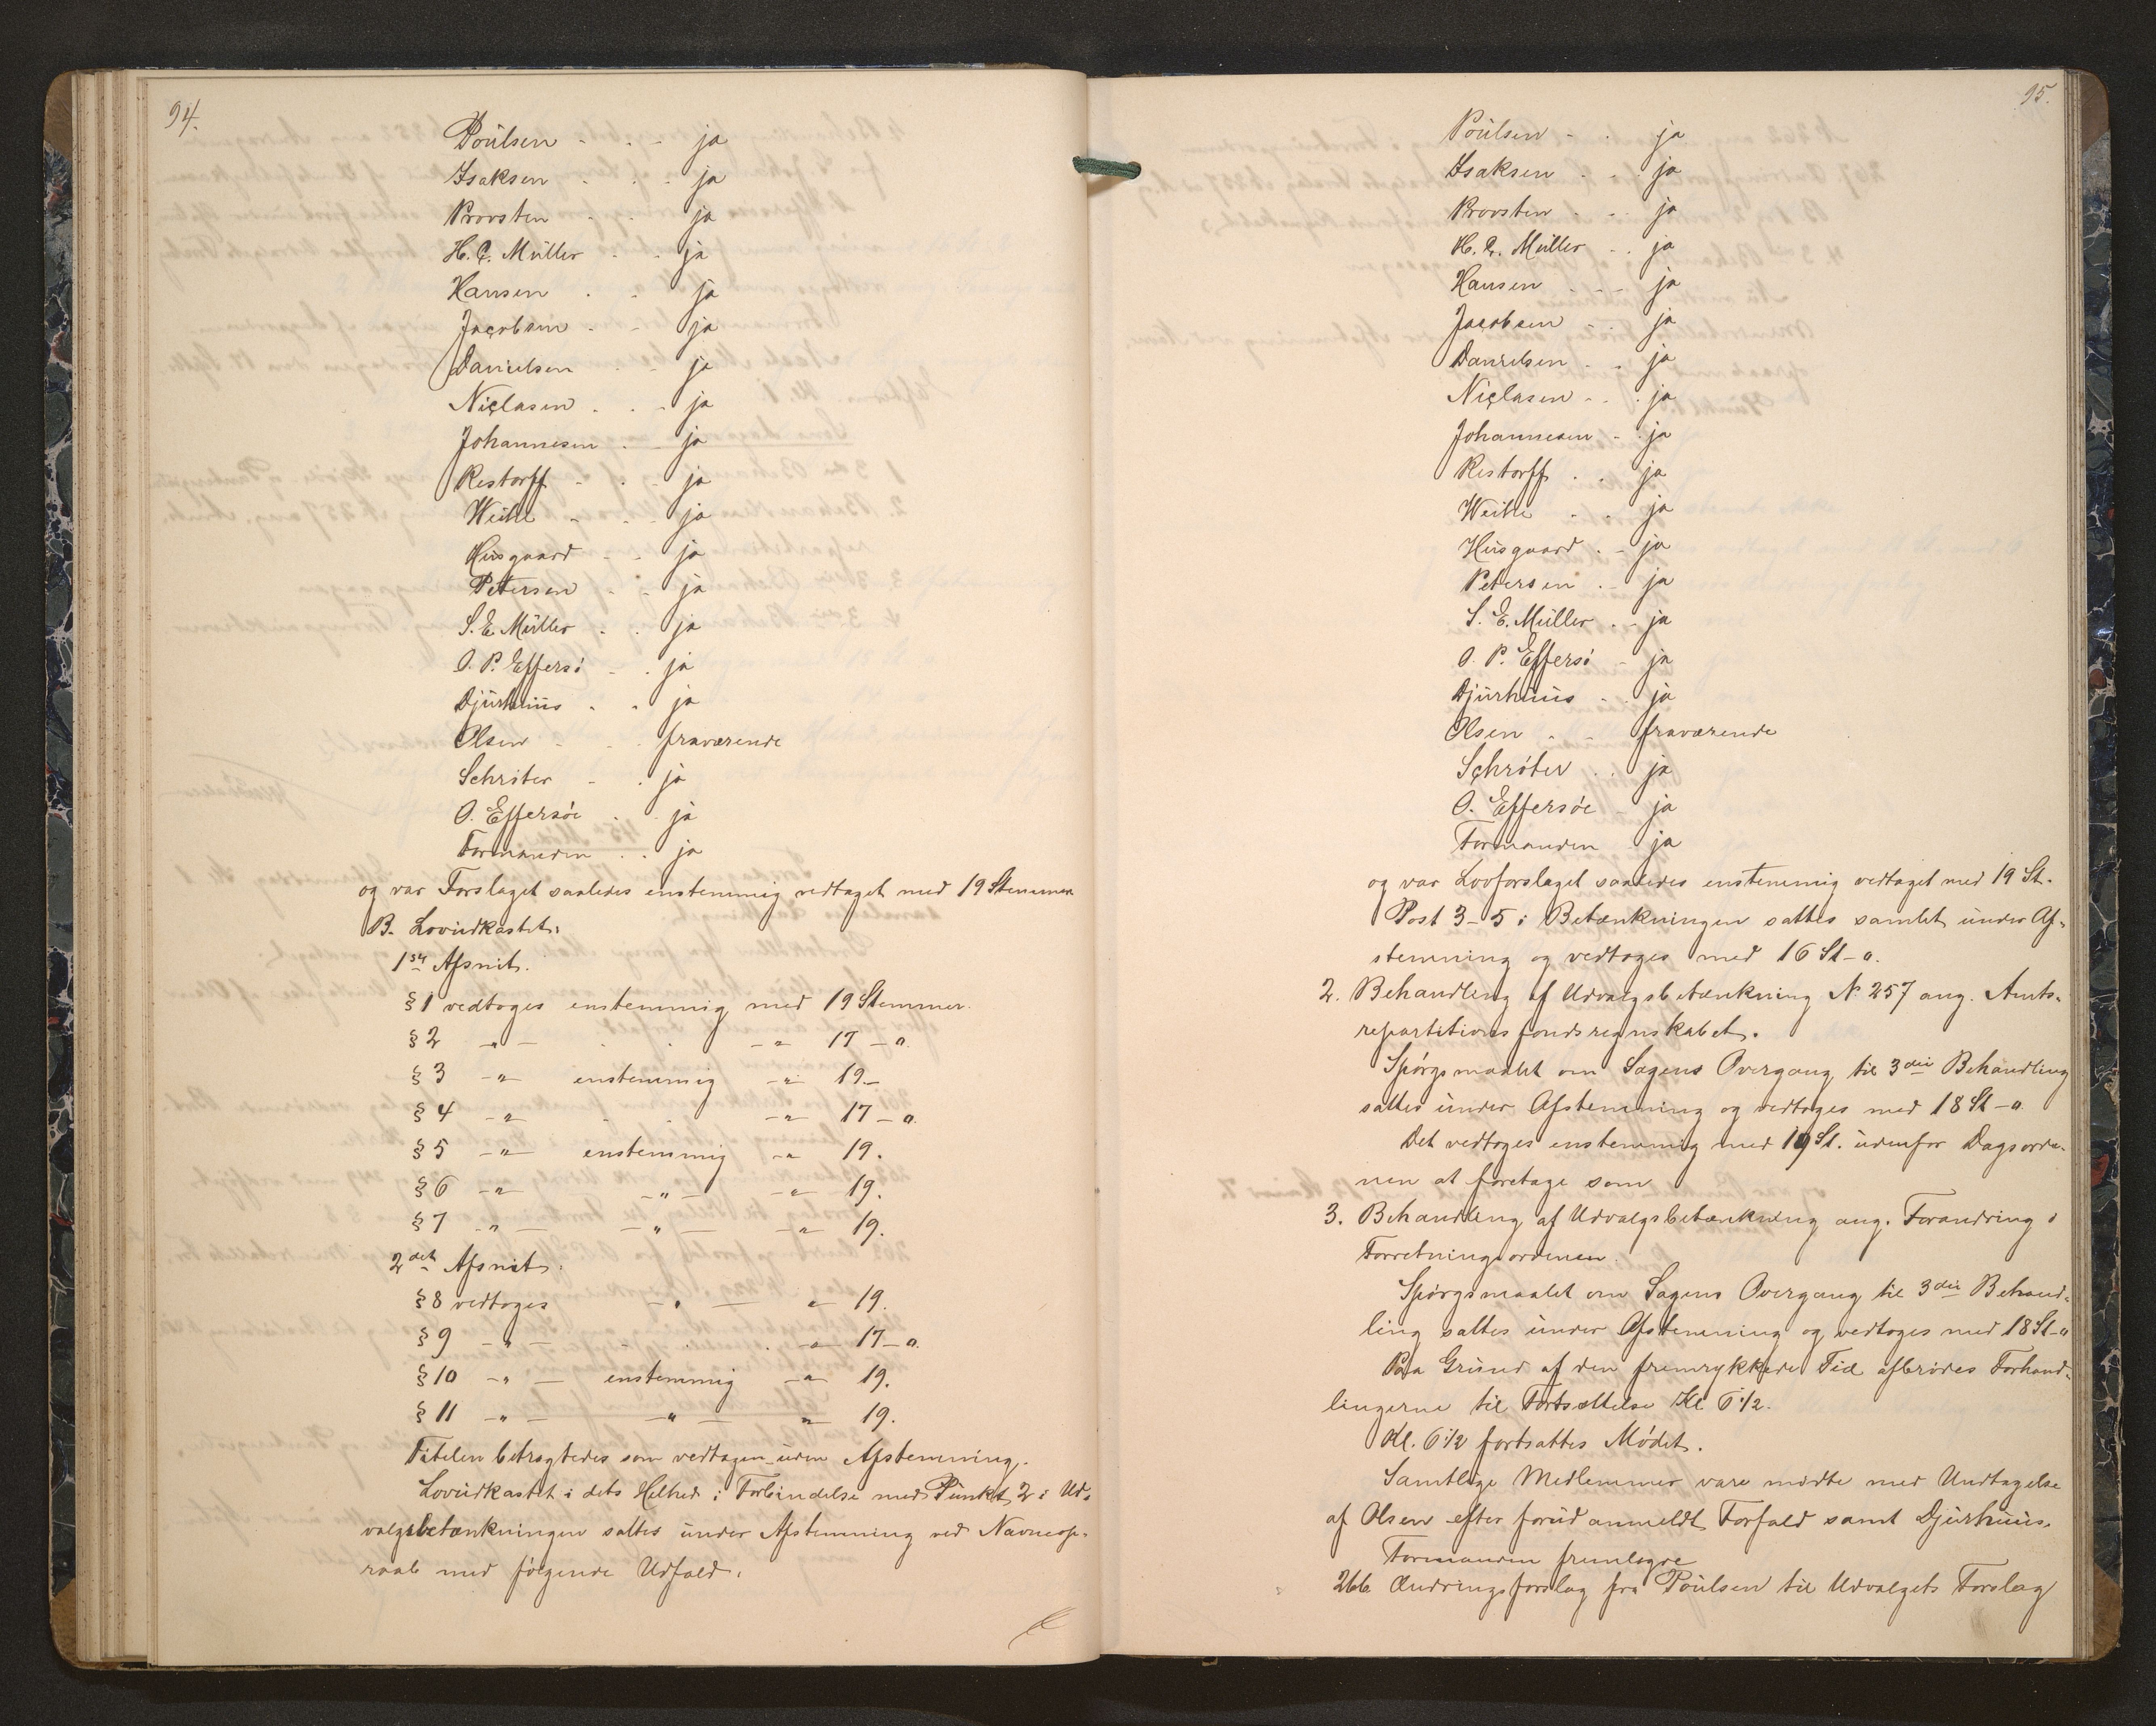 94.
Poulsen - - - ja
Isaksen - - - ja
Provsten - - ja
H. C. Müller - - ja
Hansen - - ja
Jacobsen - - ja
Danielsen - - ja
Niclasen - - - ja
Johannesen - - ja
Restorff - - - ja
Weihe - - - ja
Husgaard - - ja
Petersen - - ja
S. E. Müller - - ja
O. P. Effersö - - ja
Djurhuus - - ja
Olsen - - - fraværende
Schröter - - ja
O. Effersöe - ja
Formanden - - ja
og var Forslaget saaledes enstemmig vedtaget med 19 Stemmer
B. Lovudkastet:
1ste Afsnit.
§ 1 vedtoges enstemmig med 19 Stemmer.
§ 2 -"- . . -"- 17 - 0.
§ 3 -"- enstemmig -"- 19 -
§ 4 -"- . . -"- 17 - 0.
§ 5 -"- enstemmig -"- 19.
§ 6 -"- -"- -"- 19.
§ 7 -"- -"- -"- 19.
2det Afsnit.
§ 8 vedtoges -"- -"- 19.
§ 9 -"- . . -"- 17 - 0.
§ 10 -"- enstemmig -"- 19.
§ 11 -"- -"- -"- 19.
Titelen betragtedes som vedtagen uden Afstemning.
Lovudkastet i dets Helhed i Forbindelse med Punkt 2 i Ud-
valgsbetænkningen sattes under Afstemning ved Navneop-
raab med følgende Udfald:
95.
Poulsen - - ja
Isaksen - - - ja
Provsten - - - ja
H. C. Müller - - ja
Hansen - - - ja
Jacobsen - - ja
Danielsen - - ja
Niclasen - - - ja
Johannesen - - ja
Restorff - - ja
Weihe - - ja
Husgaard - - ja
Petersen - - ja
S. E. Müller - - ja
O. P. Effersö - ja
Djurhuus - ja
Olsen - - fraværende
Schröter - - ja
O. Effersöe - ja
Formanden ja
og var Lovforslaget saaledes enstemmig vedtaget med 19 St.
Post 3-5 i Betænkningen sattes samlet under Af-
stemning og vedtoges med 16 St - 0.
2. Behandling af Udvalgsbetænkning No 257 ang. Amts-
repartitionsfondsregnskabet.
Spørgsmaalet om Sagens Overgang til 3die Behandling
sattes under Afstemning og vedtoges med 18 St - 0.
Det vedtoges enstemmig med 19 St. udenfor Dagsorde-
nen at foretage som
3. Behandling af Udvalgsbetænkning ang. Forandring i
Forretningsordenen.
Spørgsmaalet om Sagens Overgang til 3die Behand-
ling sattes under Afstemning og vedtoges med 18 St - 0
Paa Grund af den fremrykkede Tid afbrødes Forhand-
lingerne til Fortsættelse Kl. 6 1/2.
Kl. 6 1/2 fortsattes Mødet.
Samtlige Medlemmer vare mødte med Undtagelse
af Olsen efter forud anmeldt Forfald samt Djurhuus.
Formanden fremlagde
266 Ændringsforslag fra Poulsen til Udvalgets Forslag